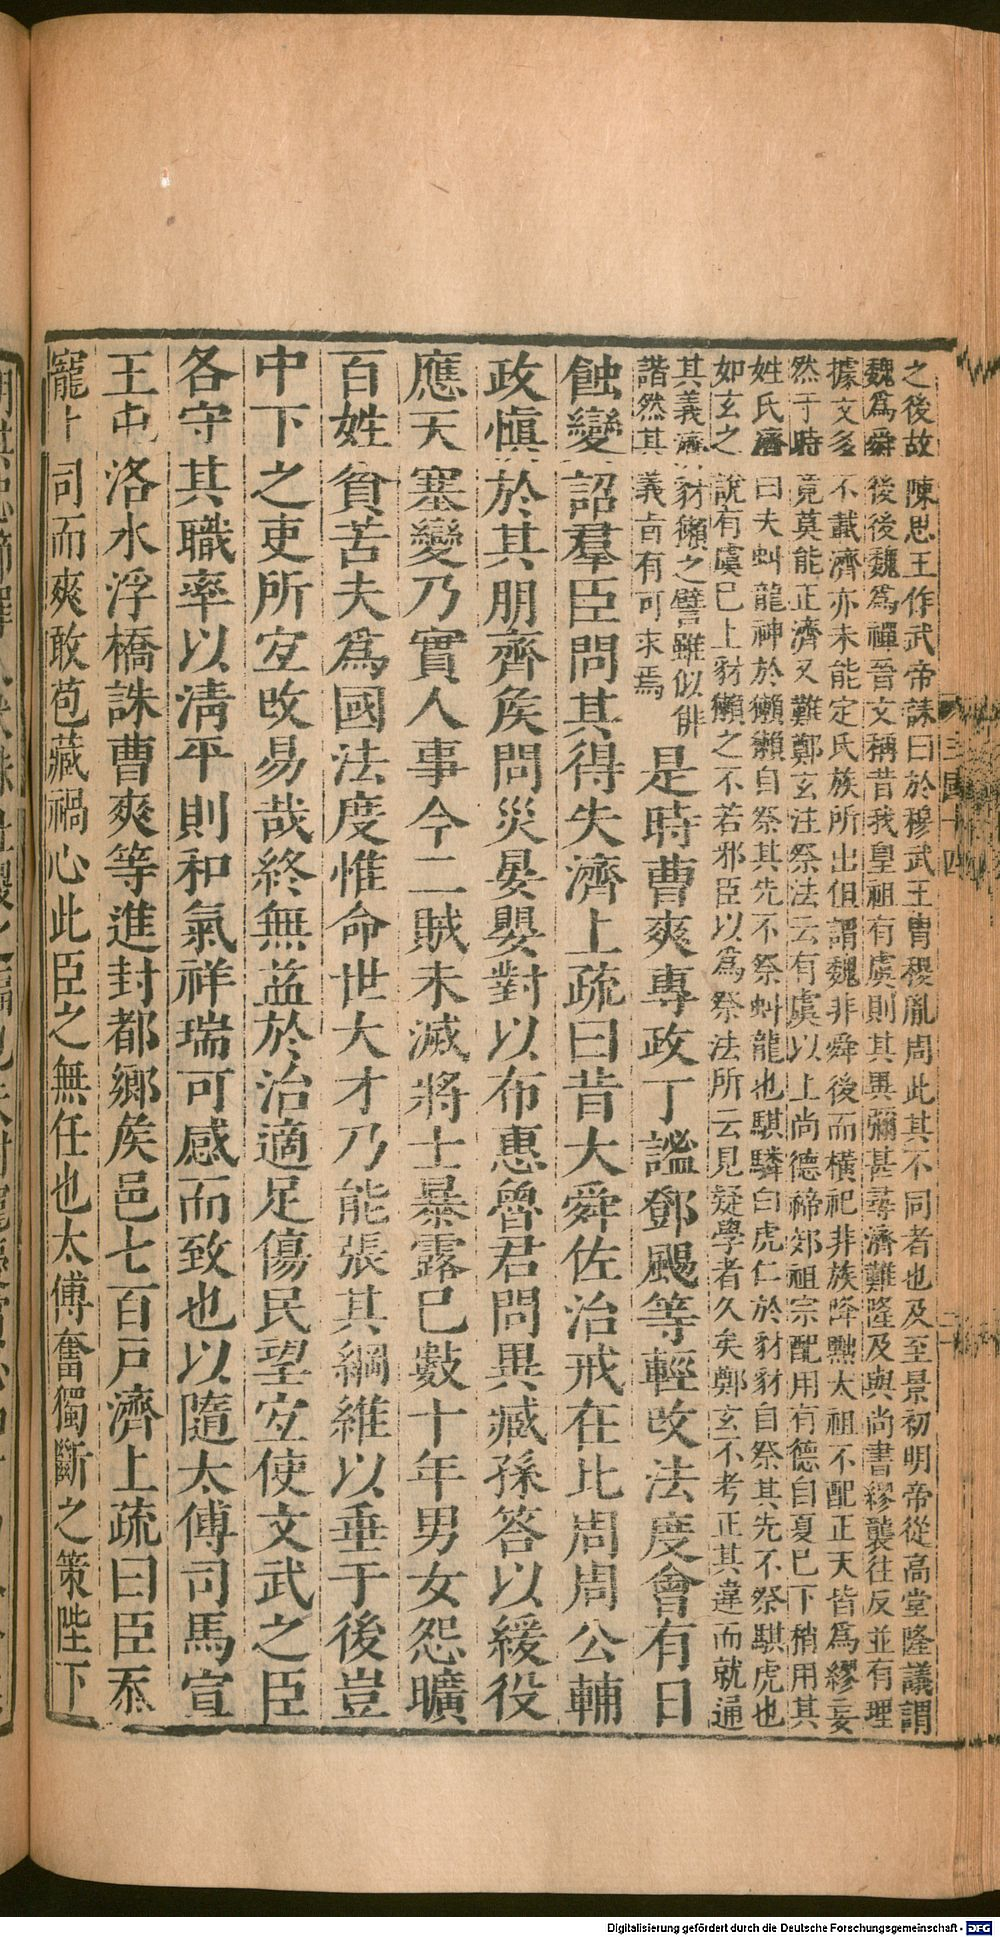 之後故陳思王作武帝誄曰於穆武王冑稷胤周此其不同者也及至景初明帝從高堂隆議謂
魏爲舜後後魏爲禪晉文稱昔我皇祖有虞則其異彌甚尋濟難隆及與尚書繆襲往反並有理
據文多不載濟亦未能定氏族所出但謂魏非舜後而橫祀非族降黜太祖不配正天皆爲繆妄
然于時竟莫能正濟又難鄭玄注祭法云有虞以上尚德禘郊祖宗配用有德自夏已下稍用其
姓氏濟曰夫虯龍神於獺獺自祭其先不祭虯龍也騏驎白虎仁於豺豺自祭其先不祭騏虎也
如玄之說有虞已上豺獺之不若邪臣以爲祭法所云見疑學者久矣鄭玄不考正其違而就通
其義濟豺獺之譬雖似俳
諧然其義㫖有可求焉
是時曹爽專政丁謐鄧颺等輕改法度會有日
蝕變詔羣臣問其得失濟上疏曰昔大舜佐治戒在比周周公輔
政愼於其朋齊侯問災晏嬰對以布惠魯君問異臧孫答以緩役
應天塞變乃實人事今二賊未滅將士暴露已數十年男女怨曠
百姓貧苦夫爲國法度惟命世大才乃能張其綱維以垂于後豈
中下之吏所宜改易哉終無益於治適足傷民望宜使文武之臣
各守其職率以淸平則和氣祥瑞可感而致也以隨太傅司馬宣
王屯洛水浮橋誅曹爽等進封都鄉侯邑七百戸濟上疏曰臣忝
寵上司而爽敢苞藏禍心此臣之無任也太傅奮獨斷之策陛下
三國十四
Digitalisierung gefördert durch die Deutsche Forschungsgemeinschaft - DFG